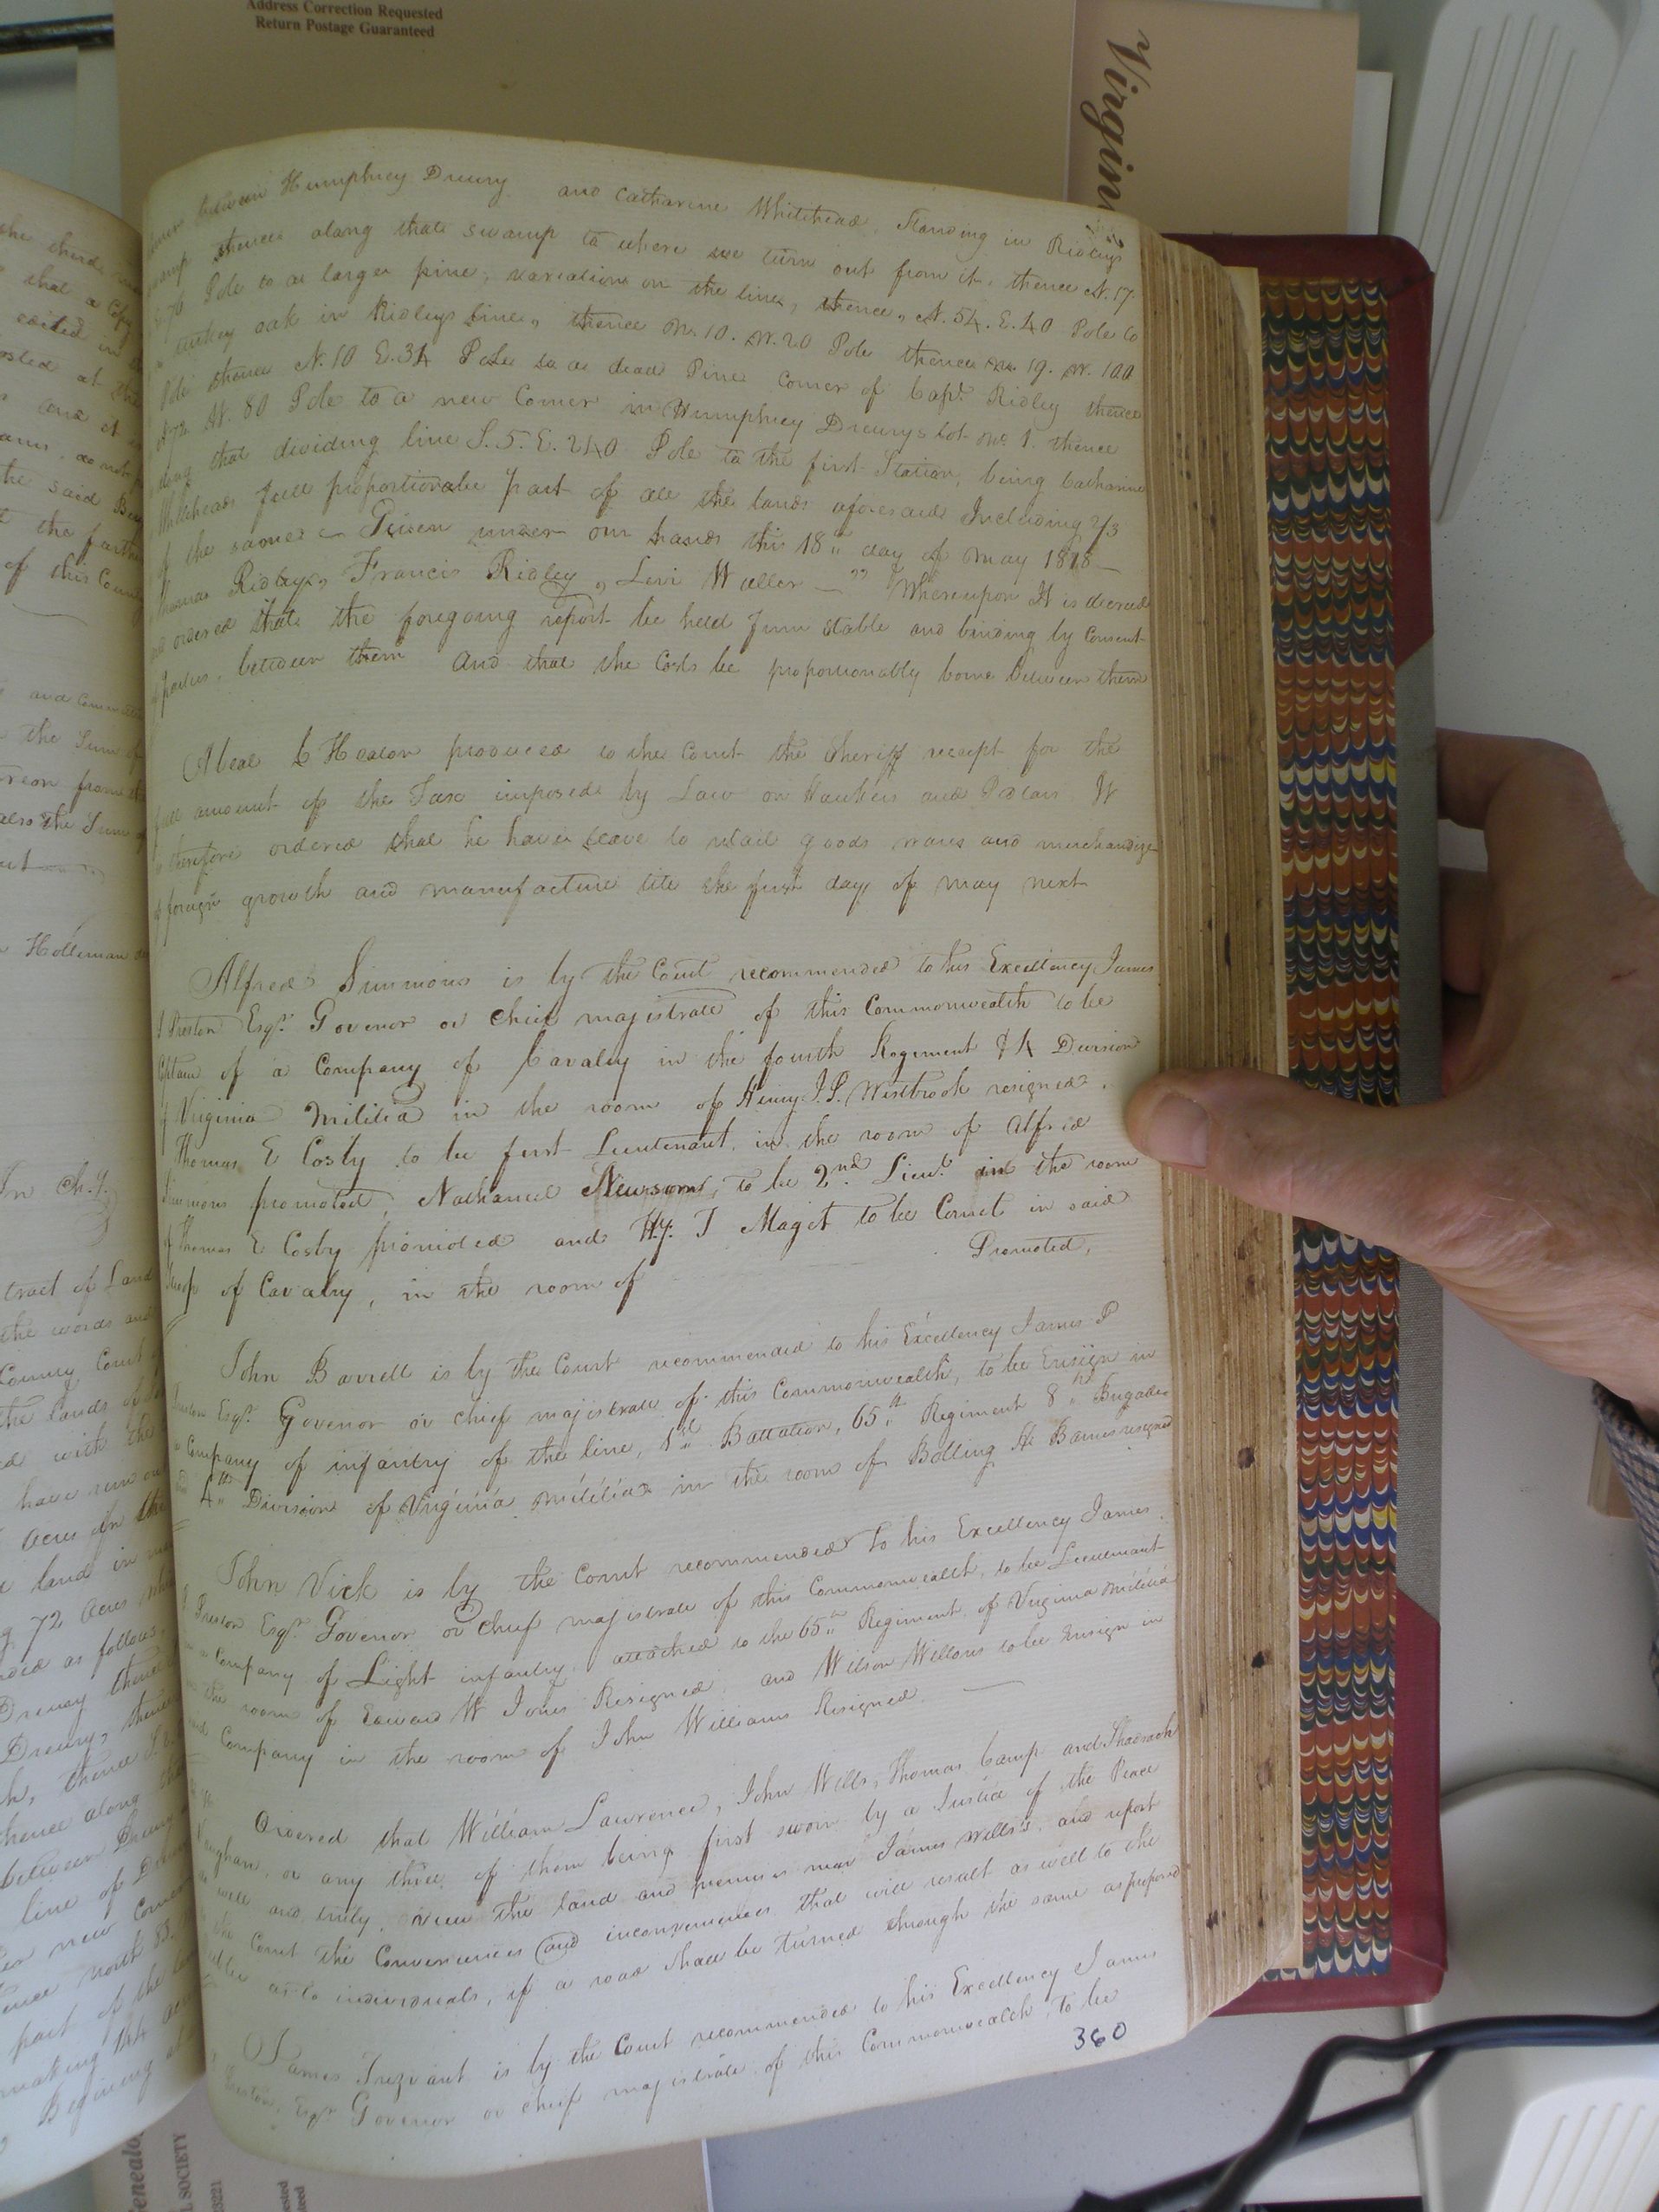 Address Correction Requested
Return Postage Guaranteed
Virgin
corner between Humphrey Drewry and Catharine Whitehead, Standing in Ridleys
swamp thence along that swamp to where we turn out from it, thence N. 17.
70 Pole to a large pine, variation on the line, thence, N. 54. E. 40 Pole to
turkey oak in Ridleys line, thence No. 10. W. 20 Pole thence No. 19. W. 100
Pole thence N. 10 E. 34 Pole to a dead Pine Corner of Capt. Ridley thence
N 72 W. 80 Pole to a new Corner in Humphrey Drewrys lot No. 1. thence
along that dividing line S. 5. E. 240 Pole to the first Station, being Catharine
Whiteheads full proportionable part of all the lands aforesaid Including 2/3
of the same. Given under our hands this 18th day of May 1818
Thomas Ridley, Francis Ridley, Levi Waller — " Whereupon It is decreed
and ordered that the foregoing report be held firm stable and binding by Consent
of parties, between them And that the Costs be proportionably borne between them
Heaton produced to the Court the Sheriff receipt for the
full amount of the Tax imposed by Law on Hawkers and Pedlars It
is therefore ordered that he have leave to retail goods wares and merchandize
of foreign growth and manufacture till the first day of May next
Alfred Simmons is by the Court recommended to his Excellency James
P Preston Esqr. Govenor or Chief majistrate of this Commonwealth to be
Captain of a Company of Cavalry in the fourth Regiment & 4 Division
of Virginia militia in the room of Henry J. P. Westbrook resigned,
Thomas E Cosby to be first Lieutenant, in the room of Alfred
Simmons promoted, Nathaniel Newsom, to be 2nd. Lieut. in the room
of Thomas E Cosby promoted and Hy. T Maget to be Cornet in said
Troop of Cavalry, in the room of Promoted,
John Barrett is by the Court recommended to his Excellency James P
Preston Esqr. Govenor or chief majistrate of this Commonwealth, to be Ensign in
a Company of infantry of the line, 1st Battalion, 65th Regiment 8th Brigade
and 4th Division of Virginia militia in the room of Bolling H. Barnes resigned
John Vick is by the Court recommended to his Excellency James
P Preston Esqr. Govenor or Chief majistrate of this Commonwealth, to be Lieutenant
in a Company of Light infantry, attached to the 65th Regiment of Virginia militia
in the room of Edward W Jones Resigned, and Wilson Williams to be Ensign in
said Company in the room of John Williams Resigned.
Ordered that William Lawrence, John Wills, Thomas Camp and Shadrach
Vaughan, or any three of them being first sworn by a Justice of the Peace
as well and truly, view the land and premises near James Wells's, and report
to the Court the Conveniences and inconveniences that will result as well to the
public as to individuals, if a road shall be turned through the same as proposed
James Trezvant is by the Court recommended to his Excellency James
P Preston, Esqr Govenor or chief majistrate of this Commonwealth, to be
360
Holliman
In Chy.
tract of Land
the words and
County Court
the lands of
with the
have run out
acres in the
land in
72 acres
as follows
Drewry thence
Drewry, thence
thence along
between Drewry
line of
new Corner
north 85.
part of the
making 144 acres
Begining at
Genealo
L SOCIETY